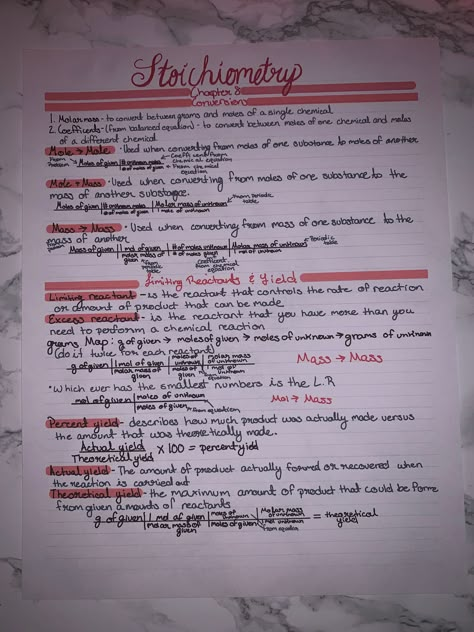 Stoichiometry
Chapter 8
Conversions
1. Molar mass - to convert between grams and moles of a single chemical
2. Coefficents - (from balanced equation) - to convert between moles of one chemical and moles
of a different chemical.
Mole → Mole · Used when converting from moles of one substance to moles of another
From Problem → Moles of given | # unknown moles ← Coefficent from chemical equation
| # of moles of given ← From chemical equation
Mole → Mass · Used when converting from moles of one substance to the
mass of another substance.
Moles of given | # of unknown moles | Molar mass of unknown ← From periodic table
| # of moles of given | 1 mole of unknown
Mass → Mass · Used when converting from mass of one substance to the
mass of another
given Mass of given | 1 mol of given | # of moles unknown | Molar mass of unknown ← Periodic table
| molar mass of given | # of moles given | 1 mol of unknown
From periodic table Coefficent from chemical equation
Limiting Reactants & Yield
Limiting reactant - is the reactant that controls the rate of reaction
or amount of product that can be made.
Excess reactant - is the reactant that you have more than you
need to perform a chemical reaction
grams Map: g of given → moles of given → moles of unknown → grams of unknown
(do it twice for each reactant)
g of given | 1 mol of given | moles of unknown | molar mass of unknown Mass → Mass
| molar mass of given | moles of given | 1 mol of unknown
from equation
· Which ever has the smallest numbers is the L.R
mol of given | moles of unknown Mol → Mass
| moles of given ← from equation
Percent yield - describes how much product was actually made versus
the amount that was theoretically made.
Actual yield
Theoretical yield x 100 = percent yield
Actual yield - The amount of product actually formed or recovered when
the reaction is carried out
Theoretical yield - the maximum amount of product that could be form
from given amounts of reactants
g of given | 1 mol of given | moles of unknown | Molar mass of unknown = theoretical yield
| molar mass of given | moles of given | 1 mol unknown
from equation